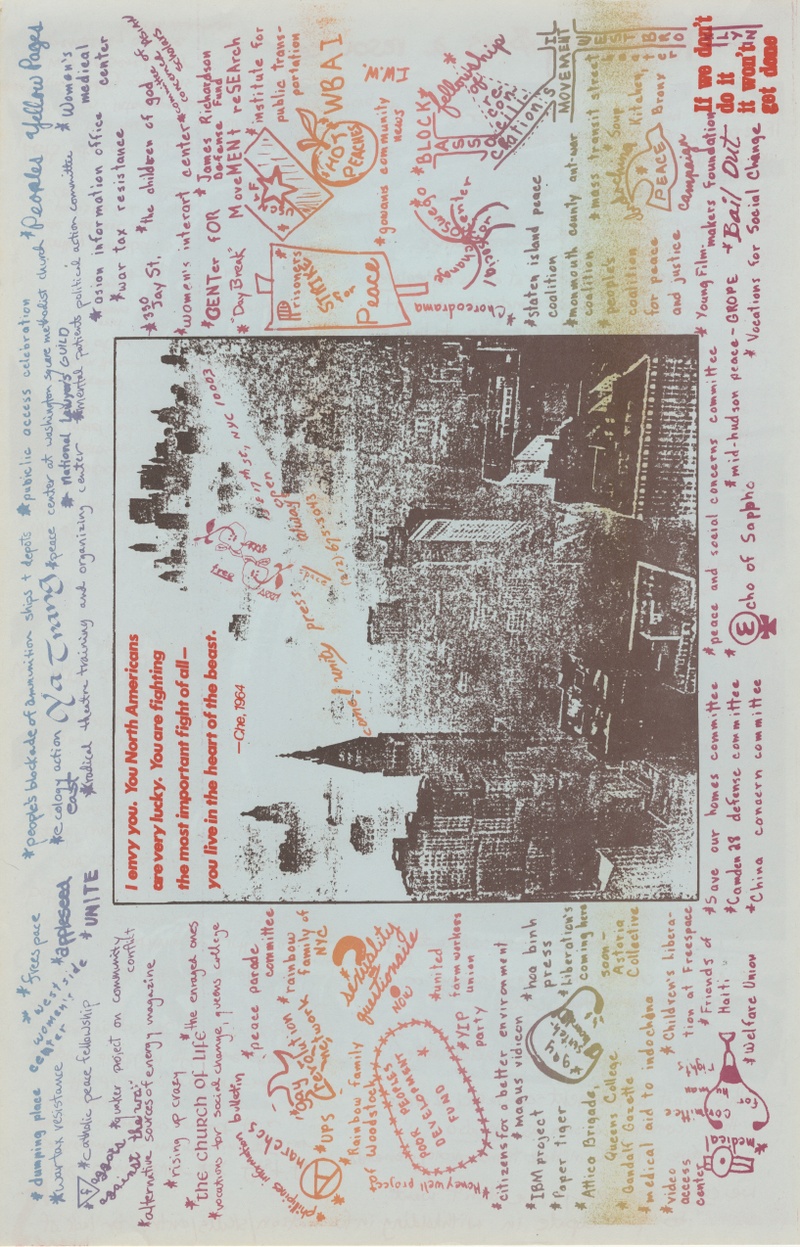 I envy you. You North Americans
are very lucky. You are fighting
the most important fight of all—
you live in the heart of the beast.
—Che, 1964
come! unity press
17 W 17 St., NYC 10003
always open
(212) 675-3043
*dumping place
*frees pace
*people's blockade of ammunition ships + depots
*public access celebration
*Peoples Yellow Pages
*war tax resistance
*appleseed
*ecology action east
Ya Tming
*peace center at washington square methodist church
*National Lawyers GUILD
*Women's medical center
*catholic peace fellowship
*UNITE
*radical theatre training and organizing center
*mental patients political action committee
*asian information office center
against the war
*quaker project on community conflict
*war tax resistance
*alternative sources of energy magazine
*rising up crazy
*the enraged ones
*THE CHURCH OF LIFE
*vocations for social change, queens college
*peace parade committee
*339 Jay St.
*the children of god
*women's interart center
*James Richardson Defense Fund
*CENTER FOR MoveMENT reSEArch
*"Day Break"
*institute for public transportation
WBAI
I.W.W.
HOT PEACHES
*gowanis community news
Prisoners
STRIKE
for
Peace
Choreodrama
*Oswego
Social
Change
Center
*BLOCK ASSOC
*fellowship of reconciliation
MOVEMENT
*staten island peace coalition
*monmouth county anti-war coalition
*mass transit street
*people's coalition for peace and justice
Soup Kitchen,
Bronx
PEACE
Campaign
If we don't
do it
it won't
get done
*rainbow family of NYC
*gay revolution network
anarchos
*UPS
*Rainbow family of Woodstock
sexuality questionaire
NOW
*YIP party
*united farm workers union
POOR PEOPLES DEVELOPMENT FUND
*Honeywell project
*citizens for a better environment
*magus vidicon
*hoa binh press
*IBM project
*Paper tiger
*Liberation's coming here soon—
Astoria Collective
*Attica Brigade, Queens College
*Gandalf Gazette
*medical aid to indochina
*video access center
*Children's Liberation at Freespace
*Friends of Haiti
*Welfare Union
*Save our homes committee
*Camden 28 defense committee
*China concern committee
*peace and social concerns committee
*Echo of Sappho
*mid-hudson peace-GROPE
*Young Filmmakers Foundation
*Bail Out
*Vocations for Social Change